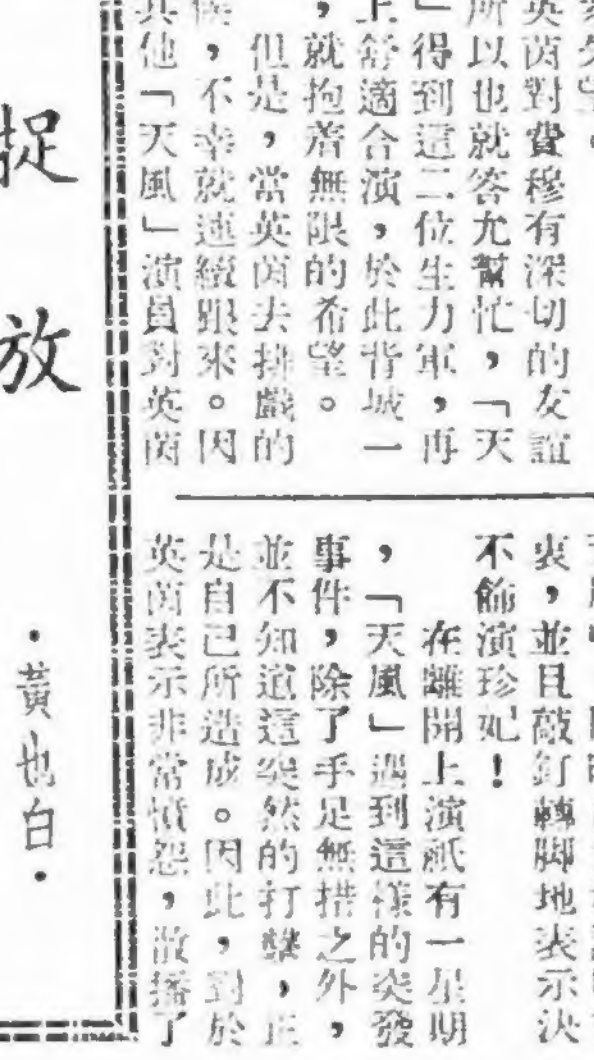 失望。
英茵對費穆有深切的友誼
所以也就答允幫忙，「天
」得到這二位生力軍，再
上舒適合演，於此背城一
，就抱着無限的希望。
但是，當英茵去排戲的
，不幸就連續跟來。因
其他「天風」演員對英茵
衷，並且敲釘轉脚地表示決
不飾演珍妃！
在離開上演祇有一星期
，「天風」遇到這樣的突發
事件，除了手足無措之外，
並不知道這突然的打擊，正
是自己所造成。因此，對於
英茵表示非常憤怨，散播了
捉放
・黃也白・